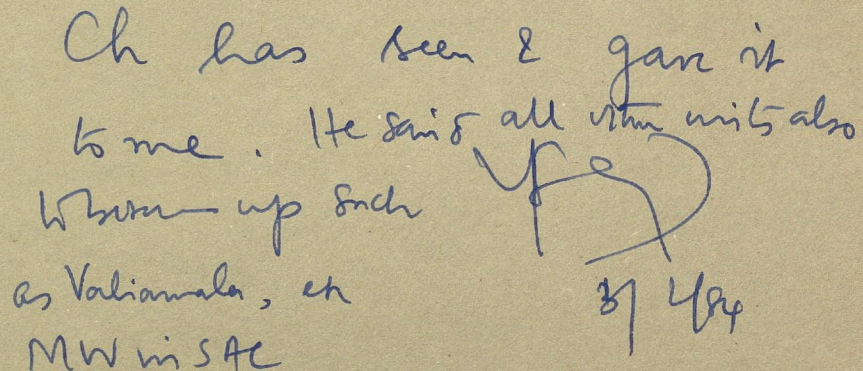 Ch has seen & gave it
to me. He said all other units also
up such
as Valiamala, etc
MW in SAC